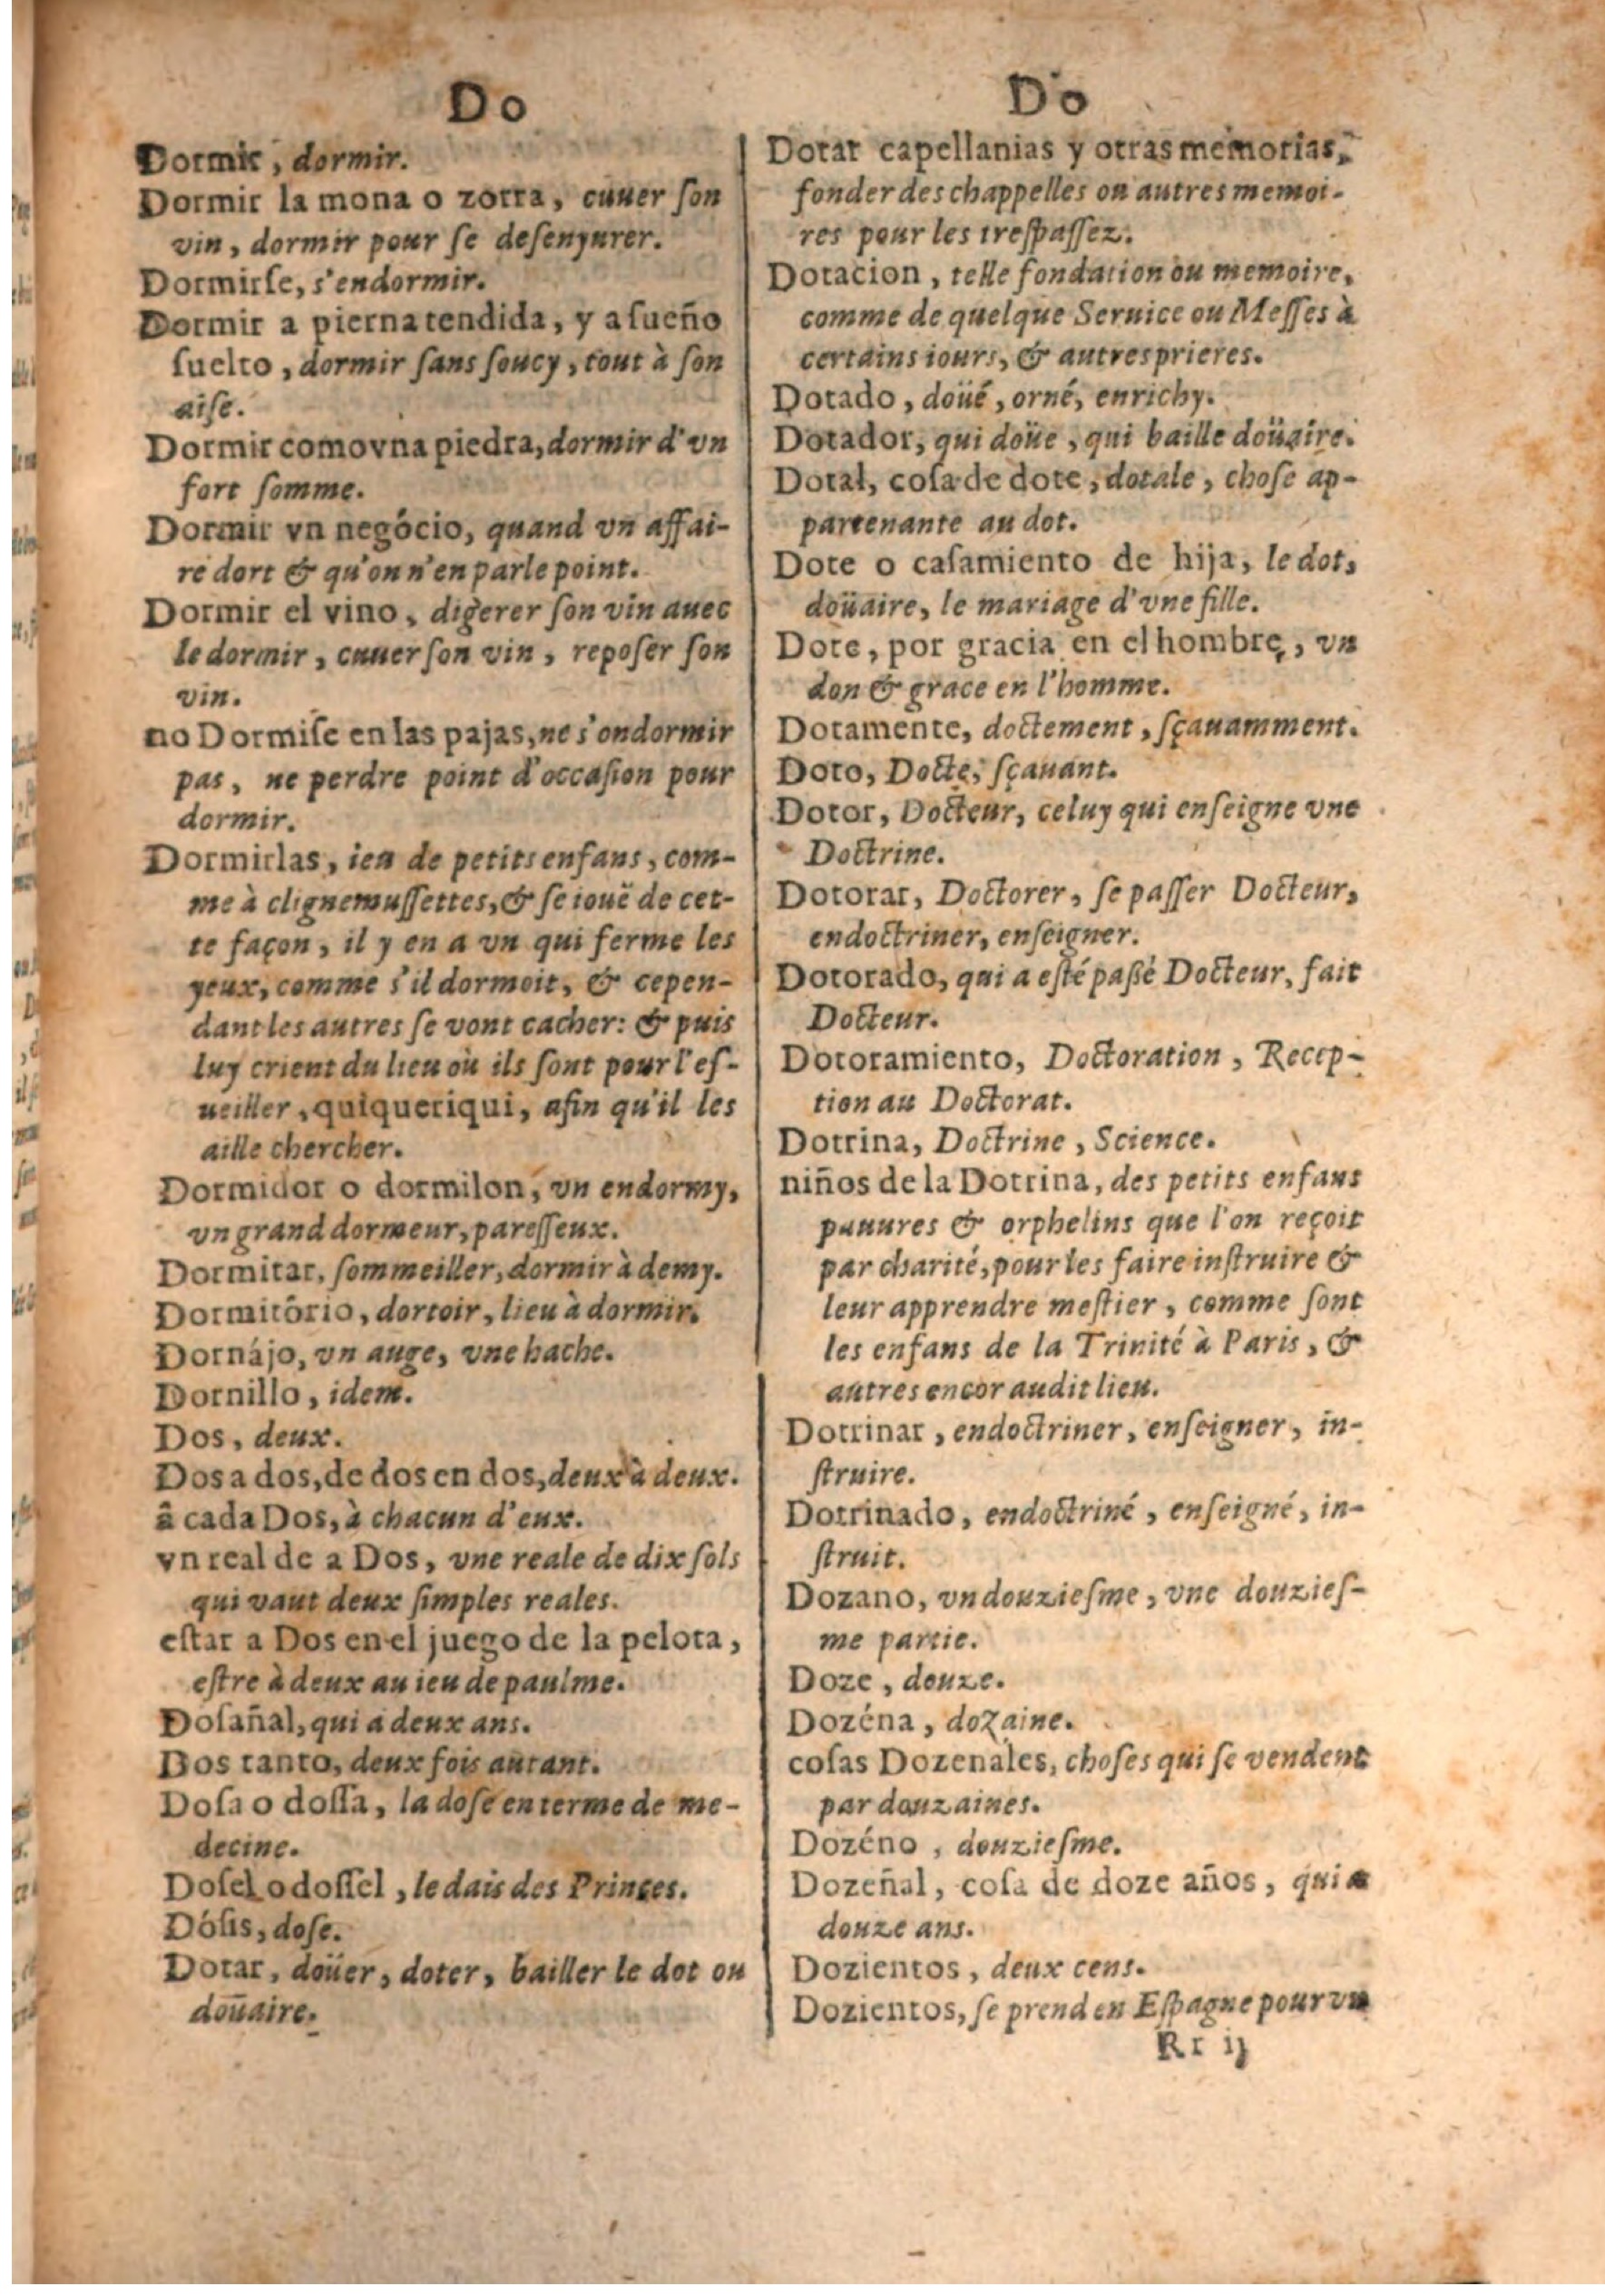 Do
Dormir, dormir.
Dormir la mona o zorra, cuuer ſon
vin, dormir pour ſe deſenyurer.
Dormirſe, s'endormir.
Dormir a pierna tendida, y a ſueño
ſuelto, dormir ſans ſoucy, tout à ſon
aiſe.
Dormir como vna piedra, dormir d'vn
fort ſomme.
Dormir vn negócio, quand vn affai-
re dort & qu'on n'en parle point.
Dormir el vino, digerer ſon vin auec
le dormir, cuuer ſon vin, repoſer ſon
vin.
no Dormiſe en las pajas, ne s'ondormir
pas, ne perdre point d'occaſion pour
dormir.
Dormirlas, ieu de petits enfans, com-
me à clignemuſſettes, & ſe iouë de cet-
te façon, il y en a vn qui ferme les
yeux, comme s'il dormoit, & cepen-
dant les autres ſe vont cacher: & puis
luy crient du lieu où ils ſont pour l'eſ-
ueiller, quiqueriqui, afin qu'il les
aille chercher.
Dormidor o dormilon, vn endormy,
vn grand dormeur, pareſſeux.
Dormitar, ſommeiller, dormir à demy.
Dormitório, dortoir, lieu à dormir.
Dornájo, vn auge, vne hache.
Dornillo, idem.
Dos, deux.
Dos a dos, de dos en dos, deux à deux.
â cada Dos, à chacun d'eux.
vn real de a Dos, vne reale de dix ſols
qui vaut deux ſimples reales.
eſtar a Dos en el juego de la pelota,
eſtre à deux au ieu de paulme.
Doſañal, qui a deux ans.
Dos tanto, deux fois autant.
Doſa o doſſa, la doſe en terme de me-
decine.
Doſel o doſſel, le dais des Princes.
Dóſis, doſe.
Dotar, doüer, doter, bailler le dot ou
doüaire.
Do
Dotar capellanias y otras memorias,
fonder des chappelles ou autres memoi-
res pour les treſpaſſez.
Dotacion, telle fondation ou memoire,
comme de quelque Seruice ou Meſſes à
certains iours, & autres prieres.
Dotado, doüé, orné, enrichy.
Dotador, qui doüe, qui baille doüaire.
Dotal, coſa de dote, dotale, choſe ap-
partenante au dot.
Dote o caſamiento de hija, le dot,
doüaire, le mariage d'vne fille.
Dote, por gracia en el hombre, vn
don & grace en l'homme.
Dotamente, doctement, ſçauamment.
Doto, Docte, ſçauant.
Dotor, Docteur, celuy qui enſeigne vne
Doctrine.
Dotorar, Doctorer, ſe paſſer Docteur,
endoctriner, enſeigner.
Dotorado, qui a eſté paßé Docteur, fait
Docteur.
Dotoramiento, Doctoration, Recep-
tion au Doctorat.
Dotrina, Doctrine, Science.
niños de la Dotrina, des petits enfans
pauures & orphelins que l'on reçoit
par charité, pour les faire inſtruire &
leur apprendre meſtier, comme ſont
les enfans de la Trinité à Paris, &
autres encor audit lieu.
Dotrinar, endoctriner, enſeigner, in-
ſtruire.
Dotrinado, endoctriné, enſeigné, in-
ſtruit.
Dozano, vn douzieſme, vne douzieſ-
me partie.
Doze, douze.
Dozéna, dozaine.
coſas Dozenales, choſes qui ſe vendent
par douzaines.
Dozéno, douzieſme.
Dozeñal, coſa de doze años, qui a
douze ans.
Dozientos, deux cens.
Dozientos, ſe prend en Eſpagne pour vn
Rr ij